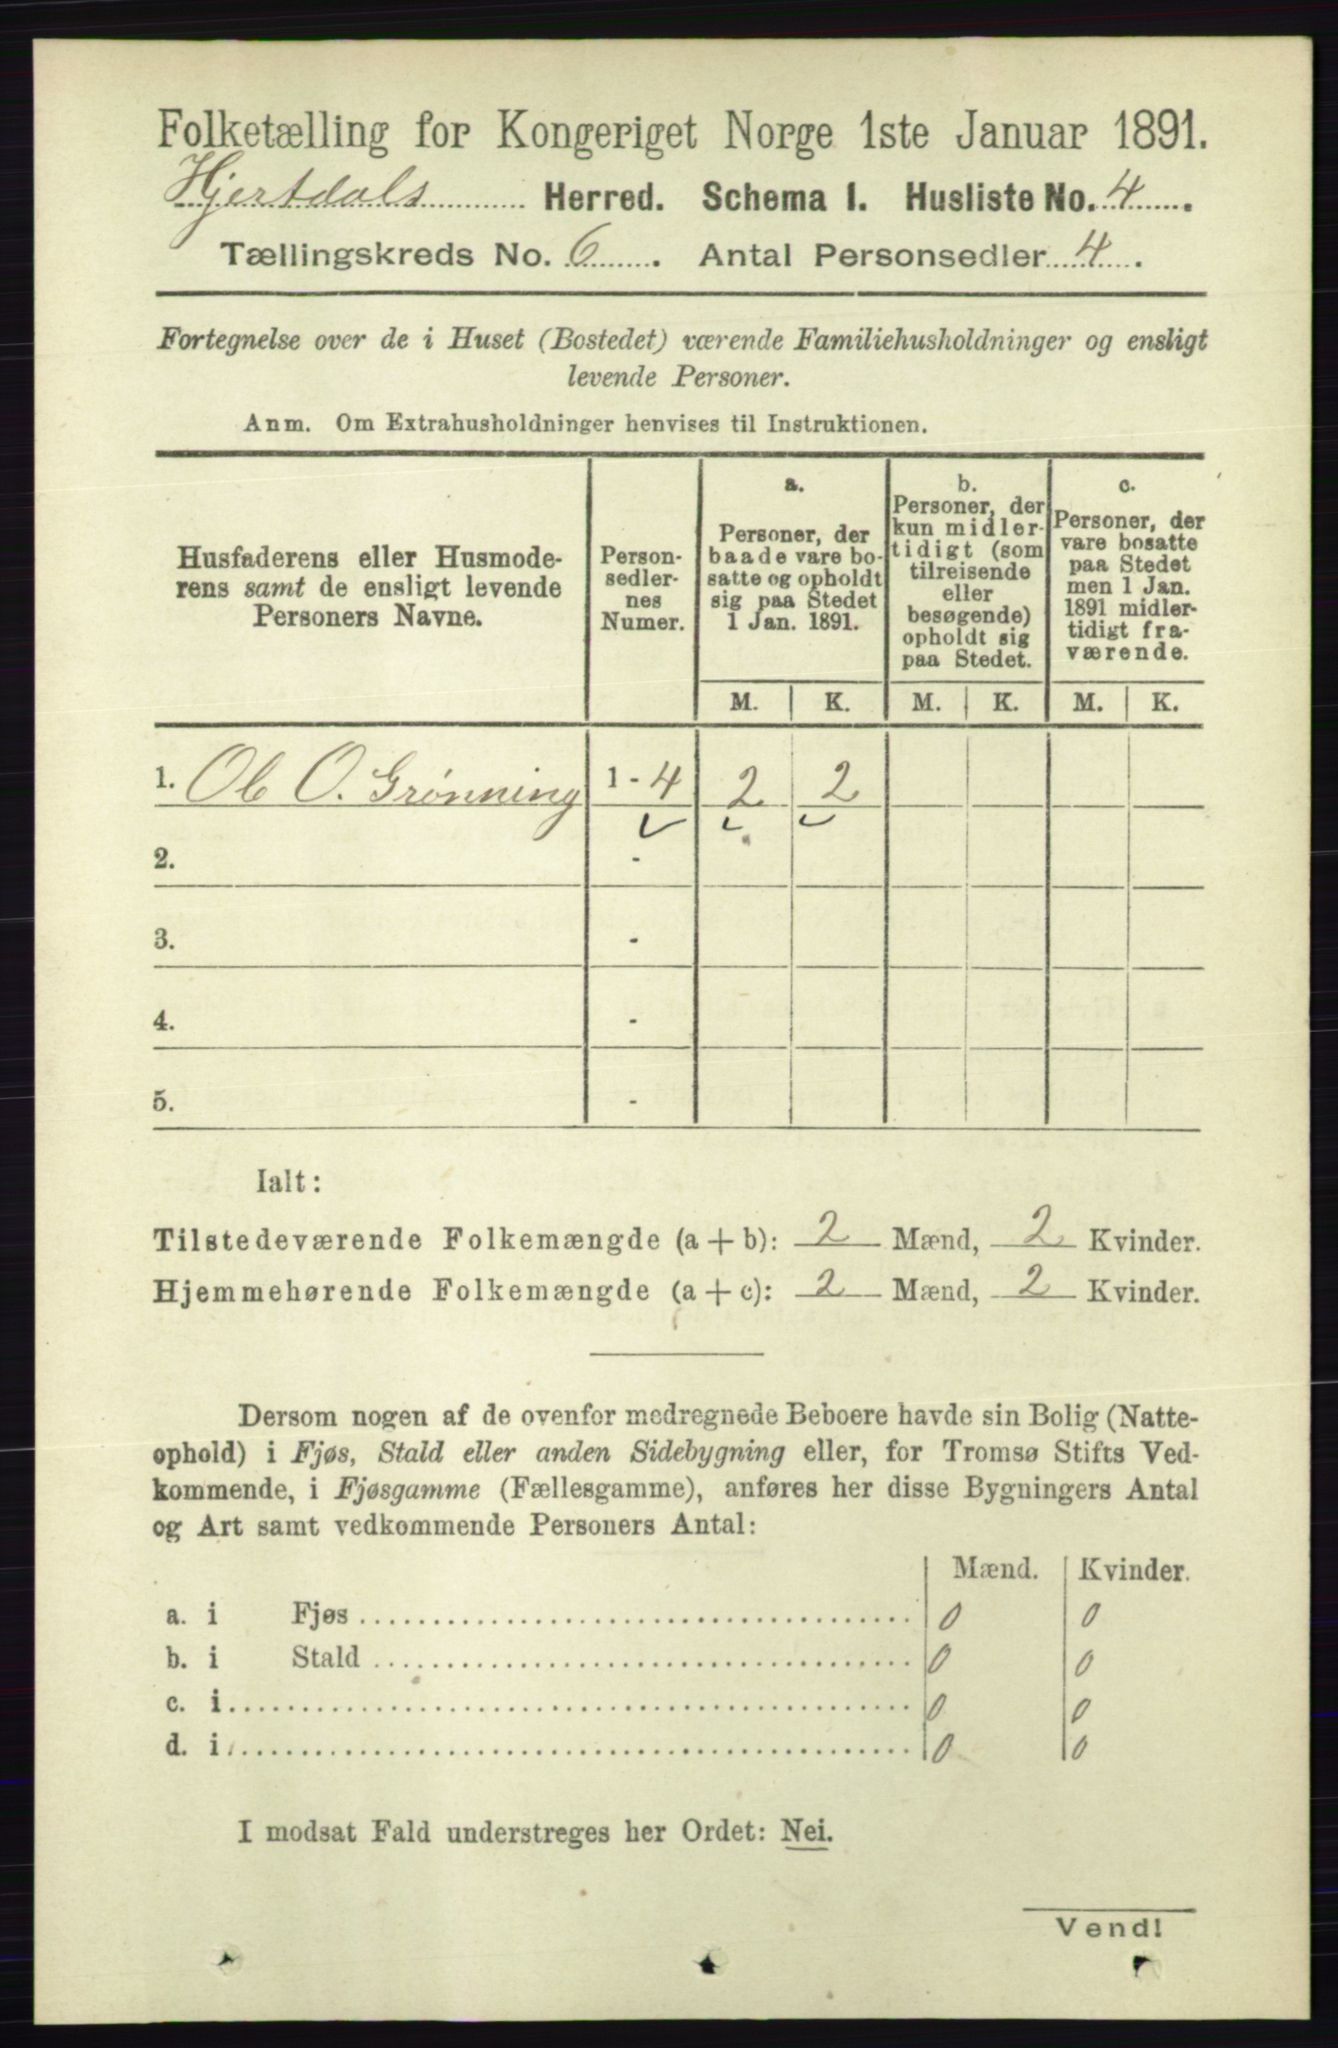 Folketælling for Kongeriget Norge 1ste Januar 1891.
Hjertdals Herred. Schema I. Husliste No. 4.
Tællingskreds No. 6. Antal Personsedler 4.
Fortegnelse over de i Huset (Bostedet) værende Familiehusholdninger og ensligt
levende Personer.
Anm. Om Extrahusholdninger henvises til Instruktionen.
Husfaderens eller Husmode-
rens samt de ensligt levende
Personers Navne.
Person-
sedler-
nes
Numer.
a.
Personer, der
baade vare bo-
satte og opholdt
sig paa Stedet
1 Jan. 1891.
b.
Personer, der
kun midler-
tidigt (som
tilreisende
eller
besøgende)
opholdt sig
paa Stedet.
c.
Personer, der
vare bosatte
paa Stedet
men 1 Jan.
1891 midler-
tidigt fra-
værende.
M. K. M. K. M. K.
1. O. Grønning 1 - 4 2 2
2. -
3. -
4. -
5. -
Ialt:
Tilstedeværende Folkemængde (a + b): 2 Mænd, 2 Kvinder.
Hjemmehørende Folkemængde (a + c): 2 Mænd, 2 Kvinder.
Dersom nogen af de ovenfor medregnede Beboere havde sin Bolig (Natte-
ophold) i Fjøs, Stald eller anden Sidebygning eller, for Tromsø Stifts Ved-
kommende, i Fjøsgamme (Fællesgamme), anføres her disse Bygningers Antal
og Art samt vedkommende Personers Antal:
Mænd. Kvinder.
a. i Fjøs 0 0
b. i Stald 0 0
c. i 0 0
d. i 0 0
I modsat Fald understreges her Ordet: Nei.
Vend!